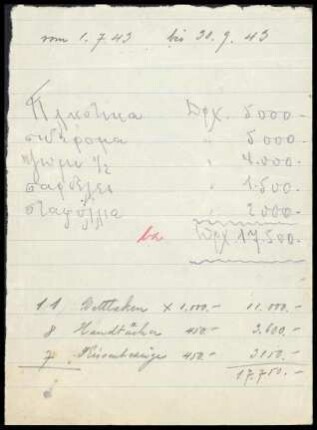 vom 1.7.43 bis 30.9.43
Πλκοτικα Drx. 5000.-
σιδέρομα " 5000-
ψωμι 1/2 " 4.000.-
σαρδέλες " 1.500-
σταφύλια " 2000-
Drx. 17.500.-
11 Bettlaken x 1.000.- 11.000.-
8 Handtücher 450- 3.600.-
7 Kissenbezüge 450.- 3150.-
17.750.-